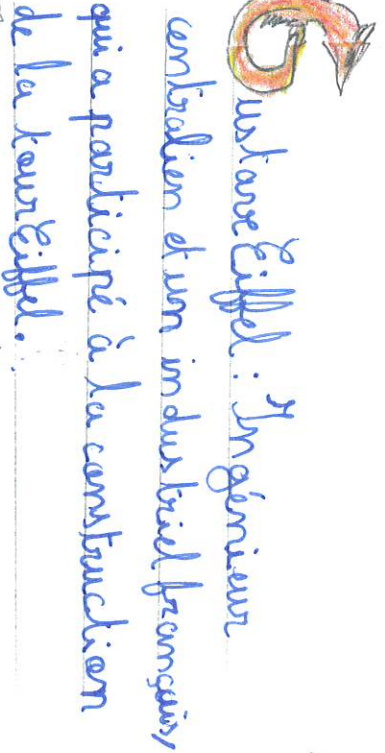 Gustave Eiffel : Ingénieur
centralien et un industriel français,
qui a participé à la construction
de la tour Eiffel.